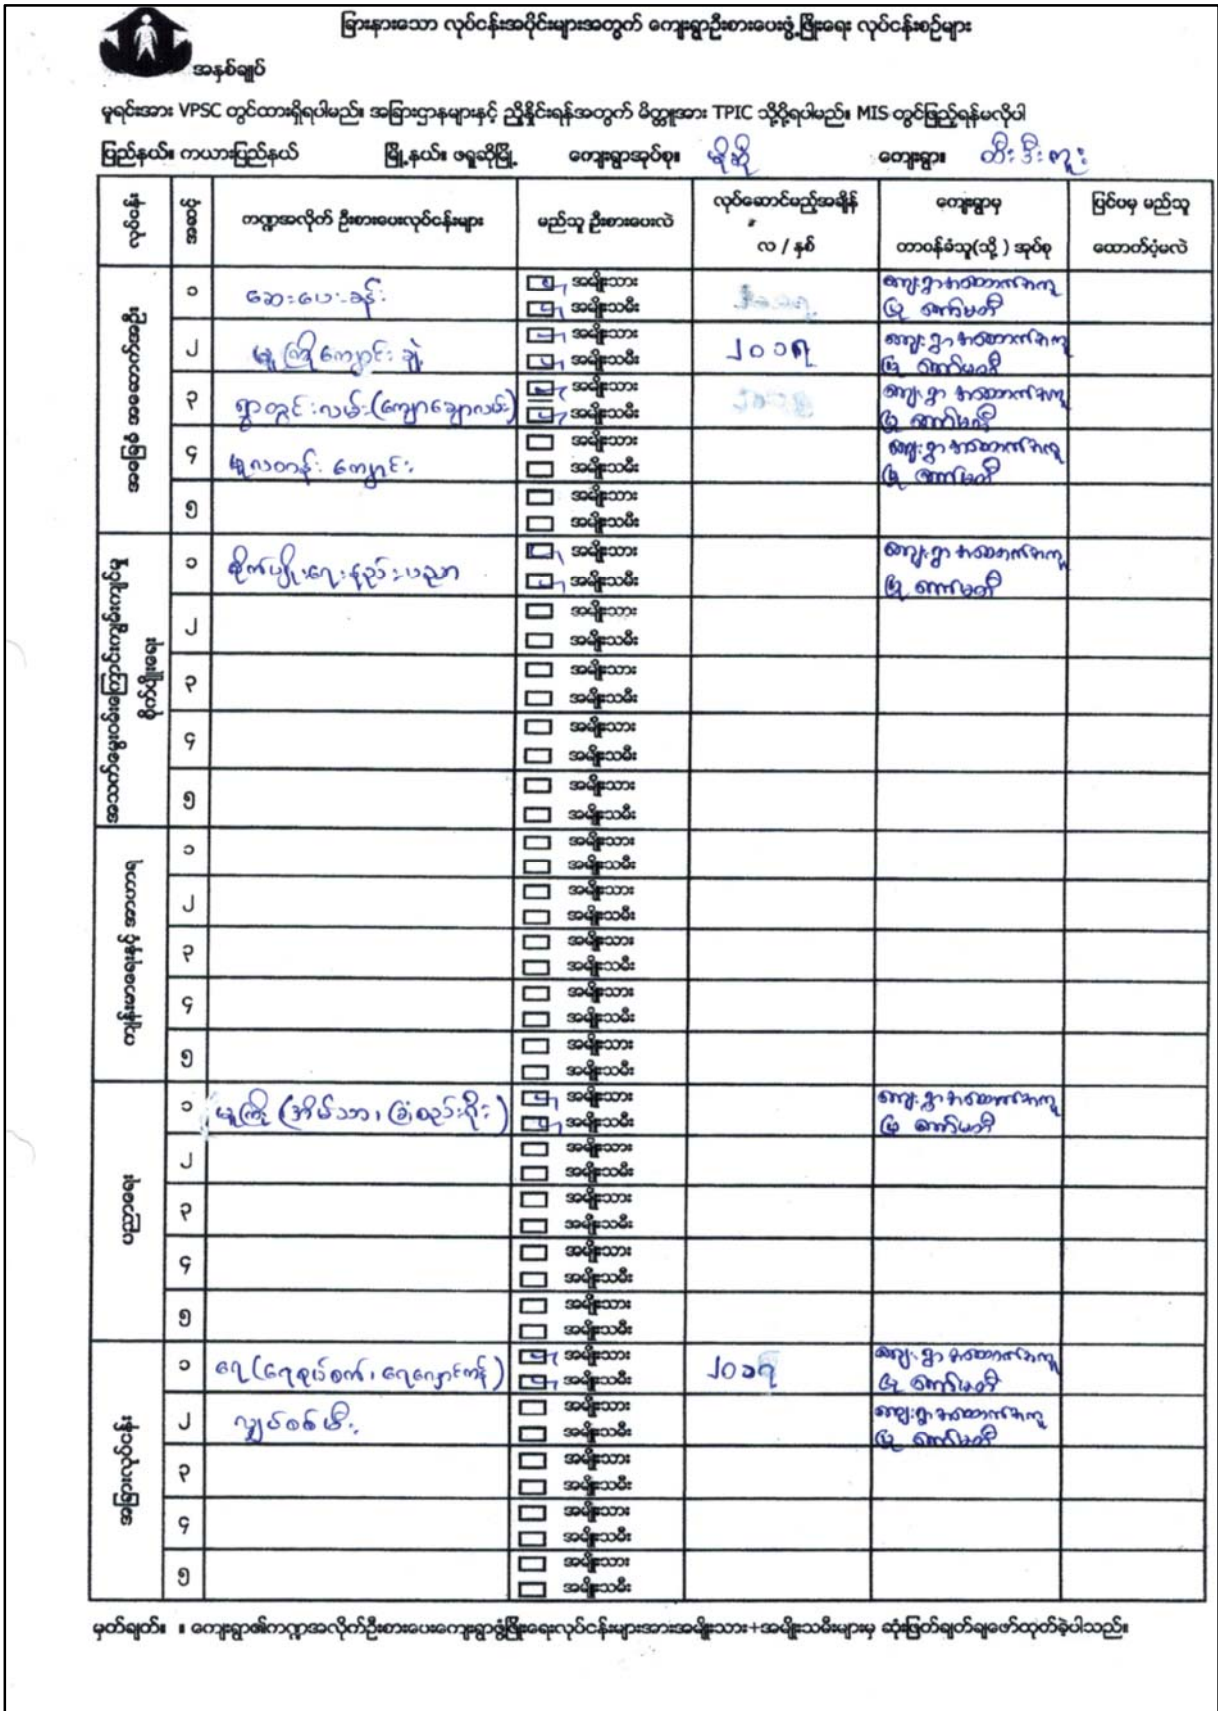 ခြားနားသော လုပ်ငန်းအပိုင်းများအတွက် ကျေးရွာဦးစားပေးဖွံ့ဖြိုးရေး လုပ်ငန်းစဉ်များ
အနှစ်ချုပ်
မူရင်းအား VPSC တွင်ထားရှိရပါမည်။ အခြားဌာနများနှင့် ညှိနှိုင်းရန်အတွက် မိတ္တူအား TPIC သို့ပို့ရပါမည်။ MIS တွင်ဖြည့်ရန်မလိုပါ
ပြည်နယ်။ ကယားပြည်နယ် မြို့နယ်။ ဖရူဆိုမြို့ ကျေးရွာအုပ်စု။ ကျေးရွာ။
လုပ်ငန်း အဆင့် ကဏ္ဍအလိုက် ဦးစားပေးလုပ်ငန်းများ မည်သူ ဦးစားပေးလဲ လုပ်ဆောင်မည့်အချိန် လ / နှစ် ကျေးရွာမှ တာဝန်ခံသူ(သို့) အုပ်စု ပြင်ပမှ မည်သူ ထောက်ပံ့မလဲ
အခြေခံ အဆောက်အဦး
၁ ဆေးပေးခန်း အမျိုးသား ကျေးရွာအထောက်အကူ
အမျိုးသမီး ပြု ကော်မတီ
၂ မူကြိုကျောင်း ချဲ့ အမျိုးသား ၂၀၁၇ ကျေးရွာအထောက်အကူ
အမျိုးသမီး ပြု ကော်မတီ
၃ ရွာတွင်းလမ်း(ကျောချောလမ်း) အမျိုးသား ကျေးရွာအထောက်အကူ
အမျိုးသမီး ပြု ကော်မတီ
၄ မူလတန်း ကျောင်း အမျိုးသား ကျေးရွာအထောက်အကူ
အမျိုးသမီး ပြု ကော်မတီ
၅ အမျိုးသား
အမျိုးသမီး
စိုက်ပျိုးရေး
၁ စိုက်ပျိုးရေးနည်းပညာ အမျိုးသား ကျေးရွာအထောက်အကူ
အမျိုးသမီး ပြု ကော်မတီ
၂ အမျိုးသား
အမျိုးသမီး
၃ အမျိုးသား
အမျိုးသမီး
၄ အမျိုးသား
အမျိုးသမီး
၅ အမျိုးသား
အမျိုးသမီး
ကျန်းမာရေးနှင့် အာဟာရ
၁ အမျိုးသား
အမျိုးသမီး
၂ အမျိုးသား
အမျိုးသမီး
၃ အမျိုးသား
အမျိုးသမီး
၄ အမျိုးသား
အမျိုးသမီး
၅ အမျိုးသား
အမျိုးသမီး
ပညာရေး
၁ မူကြို (အိမ်သာ၊ ခြံစည်းရိုး) အမျိုးသား ကျေးရွာအထောက်အကူ
အမျိုးသမီး ပြု ကော်မတီ
၂ အမျိုးသား
အမျိုးသမီး
၃ အမျိုးသား
အမျိုးသမီး
၄ အမျိုးသား
အမျိုးသမီး
၅ အမျိုးသား
အမျိုးသမီး
အခြားလုပ်ငန်း
၁ ရေ(ရေစုပ်စက်၊ ရေလှောင်ကန်) အမျိုးသား ၂၀၁၇ ကျေးရွာအထောက်အကူ
အမျိုးသမီး ပြု ကော်မတီ
၂ လျှပ်စစ်မီး အမျိုးသား ကျေးရွာအထောက်အကူ
အမျိုးသမီး ပြု ကော်မတီ
၃ အမျိုးသား
အမျိုးသမီး
၄ အမျိုးသား
အမျိုးသမီး
၅ အမျိုးသား
အမျိုးသမီး
မှတ်ချက်။ ။ ကျေးရွာ၏ကဏ္ဍအလိုက်ဦးစားပေးကျေးရွာဖွံ့ဖြိုးရေးလုပ်ငန်းများအားအမျိုးသား+အမျိုးသမီးများမှ ဆုံးဖြတ်ချက်ချဖော်ထုတ်ခဲ့ပါသည်။